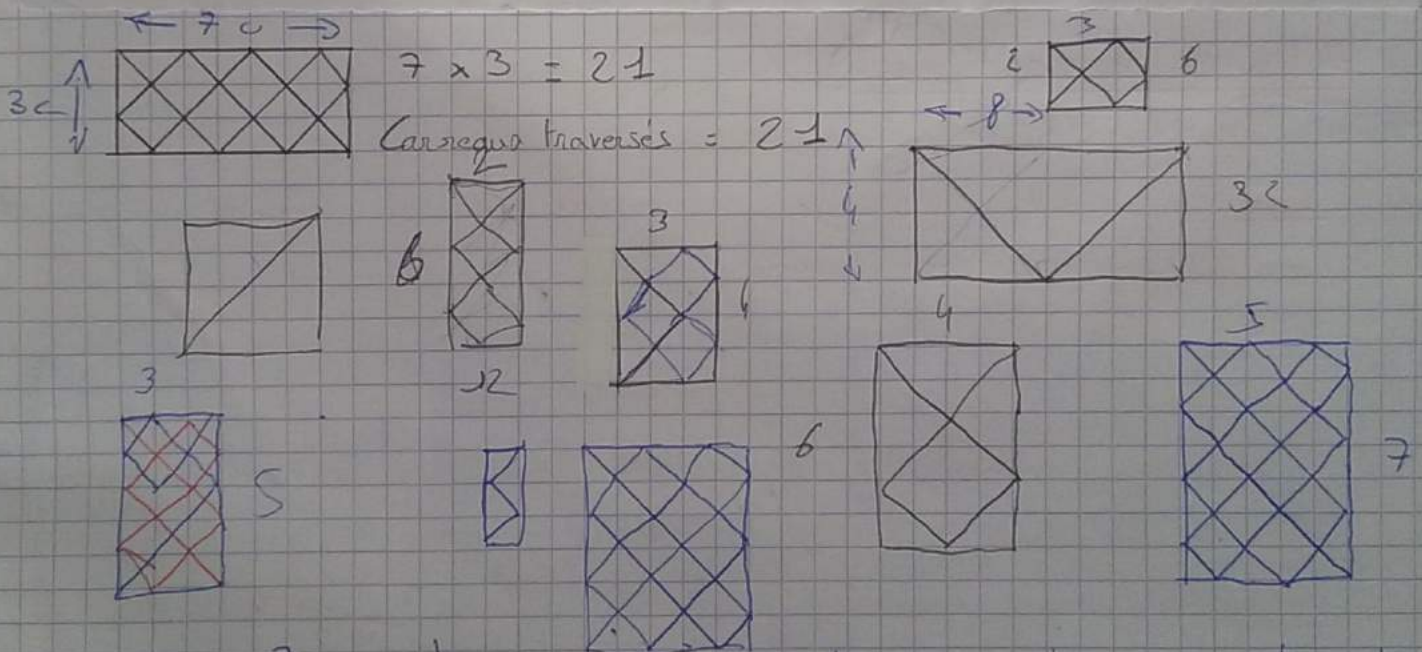 ← 7 c →
7 x 3 = 21
3c
Carreaux traversés = 21
3
2
6
← 8 →
4
32
2
6
12
3
4
5
3
5
6
7